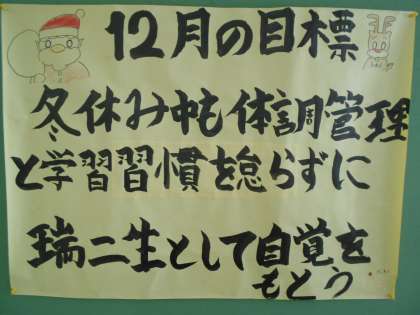 12月の目標
冬休み中も体調管理
と学習習慣を怠らずに
瑞二生として自覚を
もとう